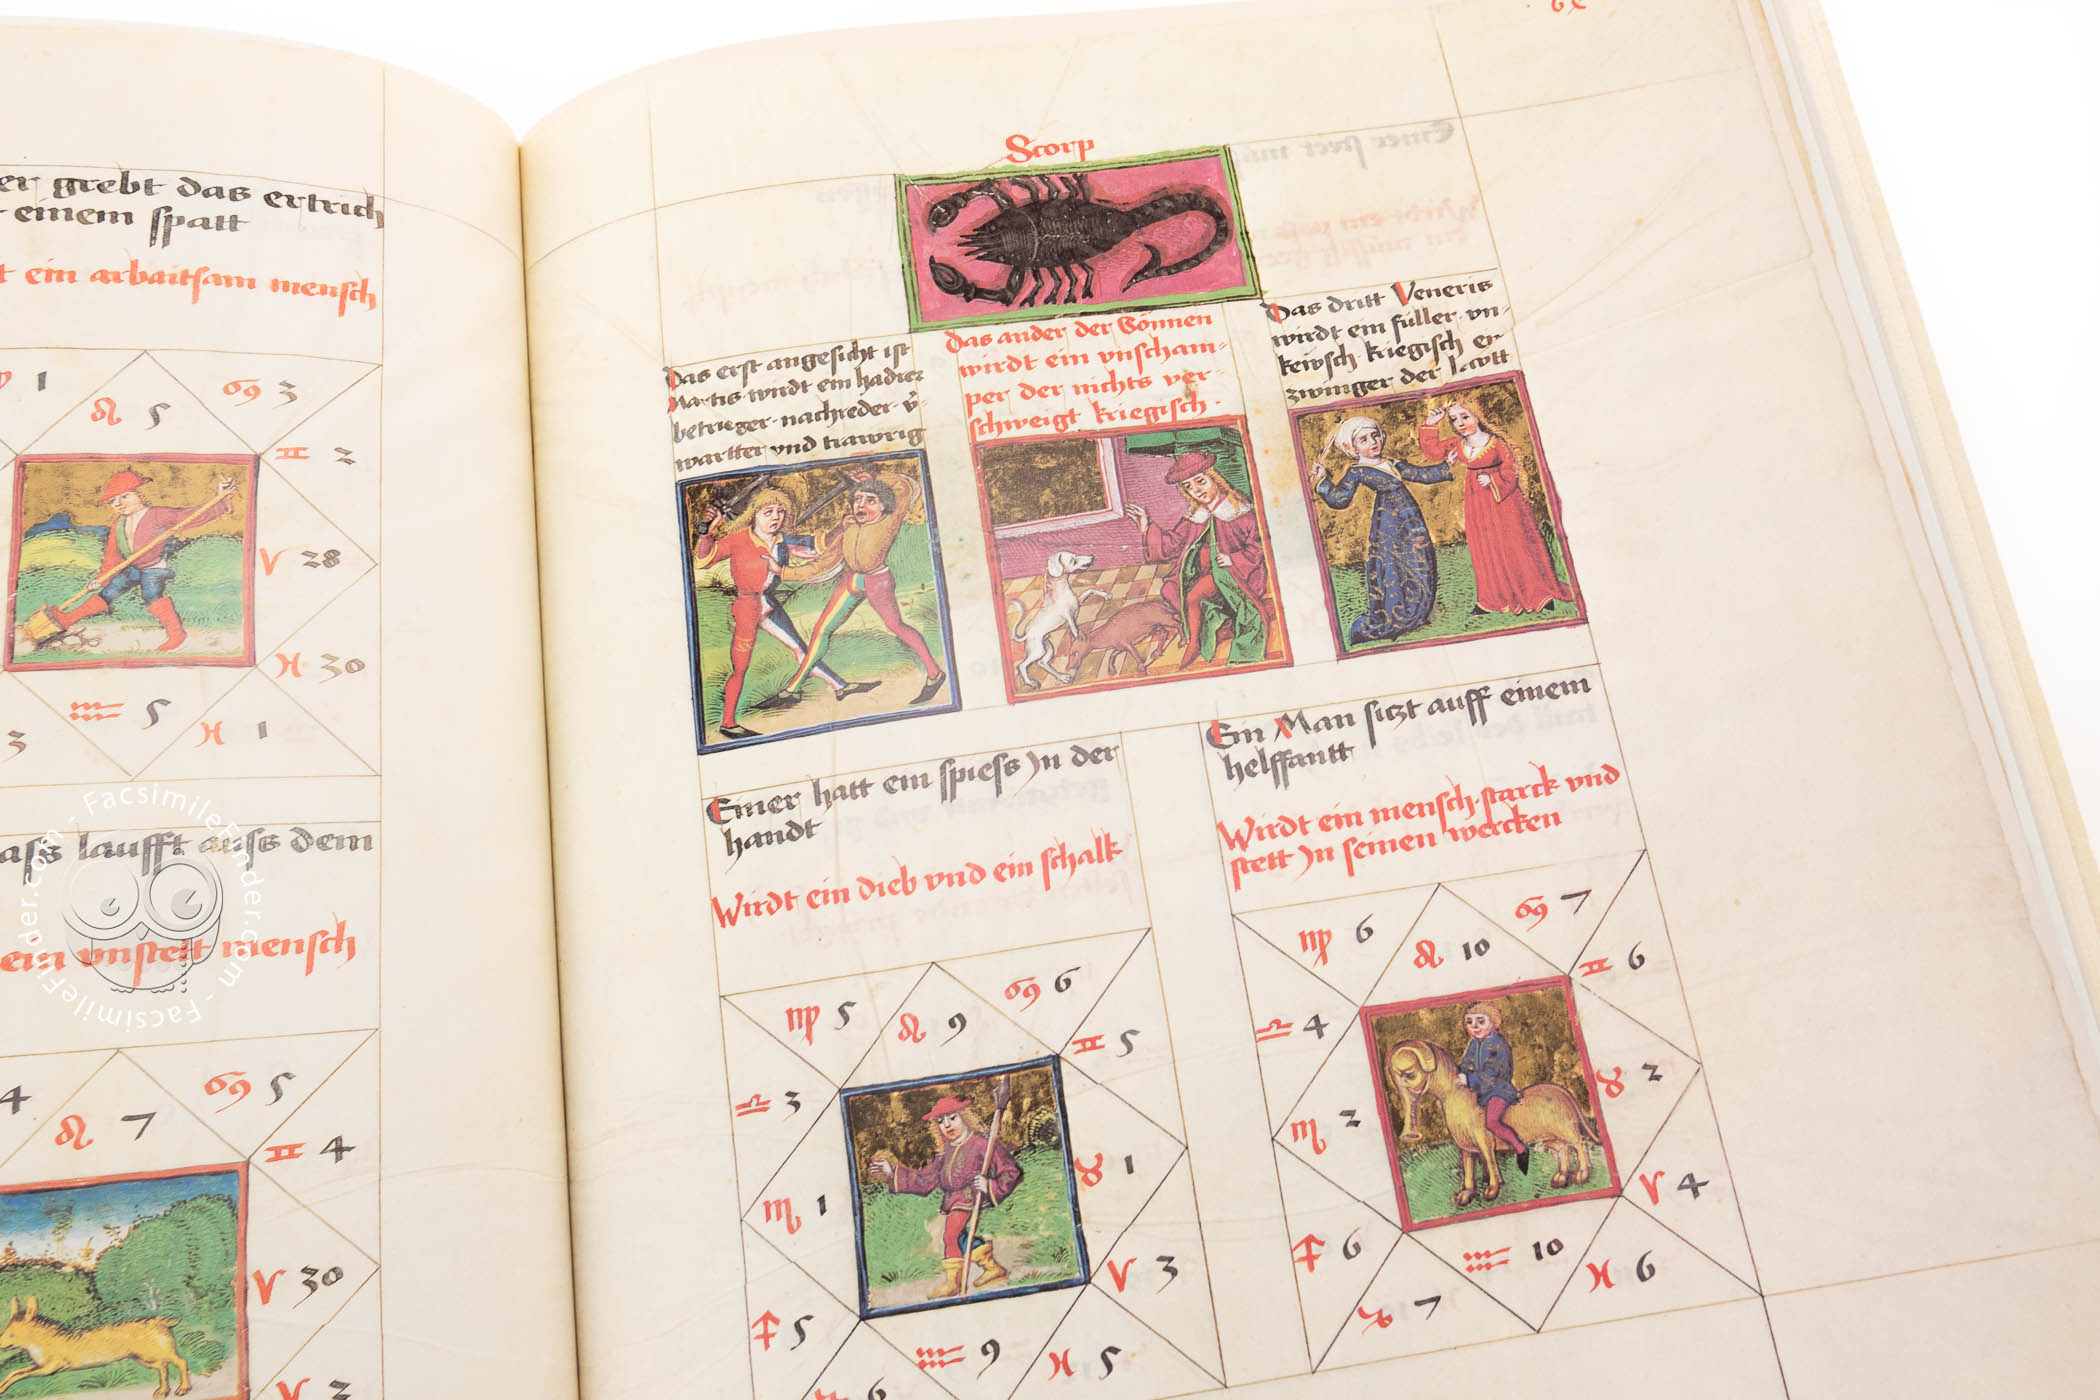 er grebt das ertrich
einem spatt
t ein arbaitsam mensch
1
69 3
♌ 5
♊ 2
♈ 28
♓ 30
♒ 5
♓ 1
3
ass laufft auss dem
ein vnstett mensch
4
69 5
♌ 7
♊ 4
♈ 30
♈ 3
Scorp
Das erst angesicht ist
Martis wirdt ein hadrer
betrieger nachreder v̄
wartter vnd trawrig
Das ander der Sönnen
wirdt ein vnscham-
per der nichts ver-
schweigt kriegisch.
Das dritt Veneris
wirdt ein füller vn-
keusch kriegisch er
zwinger der lawtt
Einer hatt ein spiess Jn der
handt
Wirdt ein dieb vnd ein schalk
♍ 5
♌ 9
69 6
♊ 5
♎ 3
♉ 1
♏ 1
♈ 3
♐ 5
♒ 9
♓ 5
♑ 6
Ein Man sitzt auff einem
helffantt
Wirdt ein mensch starck vnd
stett Jn seinen wercken
♍ 6
♌ 10
69 7
♊ 6
♎ 4
♉ 2
♏ 2
♈ 4
♐ 6
♒ 10
♓ 6
♑ 7
FacsimileFinder.com - FacsimileFinder.com -